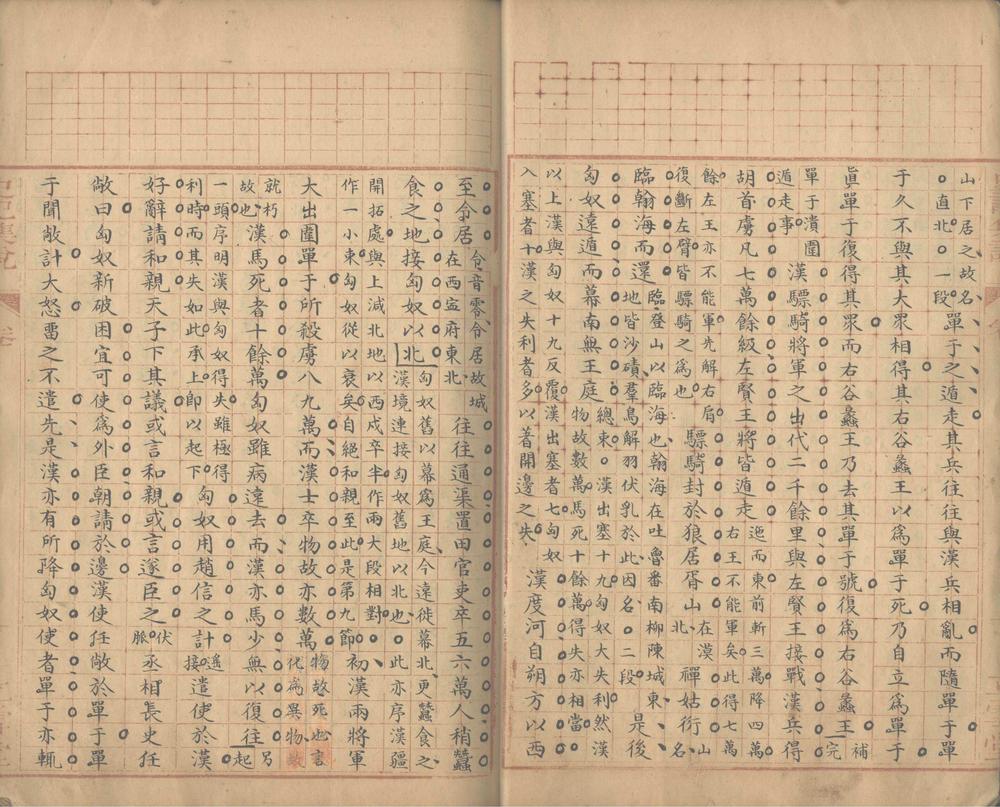 山下居之故名
直北○一段
單于之遁走其兵往往與漢兵相亂而隨單于單
于久不與其大眾相得其右谷蠡王以爲單于死乃自立爲單于
眞單于復得其眾而右谷蠡王乃去其單于號復爲右谷蠡王
補
完
單于潰圍
遁走事
漢驃騎將軍之出代二千餘里與左賢王接戰漢兵得
胡首虜凡七萬餘級左賢王將皆遁走
迤而東前斬三萬降四萬
右王不能軍矣此得七萬
餘左王亦不能軍先解右肩
復斷左臂皆驃騎之爲也
驃騎封於狼居胥山
在漢
北
禪姑衍
山
名
臨翰海而還
臨登山以臨海也翰海在吐魯番南柳陳城東
地皆沙磧羣鳥解羽伏乳於此因名○二段
是後
匈奴遠遁而幕南無王庭
總束○漢出塞十九匈奴大失利然漢
物故數萬馬死十餘萬得失亦相當
以上漢與匈奴十九反覆漢出塞者七匈奴
入塞者十漢之失利者多以著開邊之失
漢度河自朔方以西
至令居
令音零令居故城
在西寍府東北
往往通渠置田官吏卒五六萬人稍蠶
食之地接匈奴以北
匈奴舊以幕爲王庭今遠徙幕北更蠶食之
漢境連接匈奴舊地以北也○此亦序漢疆
開拓處與上減北地以西戍卒半作兩大段相對
作一小束匈奴從以衰矣自絕和親至此是第九節
初漢兩將軍
大出圍單于所殺虜八九萬而漢士卒物故亦數萬
物故死也言
化爲異物故
就朽
故也
漢馬死者十餘萬匈奴雖病遠去而漢亦馬少無以復往
另
起
一頭序明漢與匈奴得失雖極得
利時而其失如此承上卽以起下
匈奴用趙信之計
遙
接
遣使於漢
好辭請和親天子下其議或言和親或言遂臣之
伏
脈
丞相長史任
敞曰匈奴新破困宜可使爲外臣朝請於邊漢使任敞於單于單
于聞敞計大怒畱之不遣先是漢亦有所降匈奴使者單于亦輒